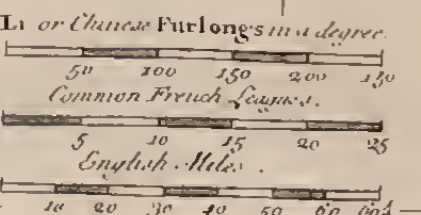 Li or Chinese Furlongs in a degree.
50 100 150 200 250
Common French Leagues.
5 10 15 20 25
English Miles.
10 20 30 40 50 60 69½